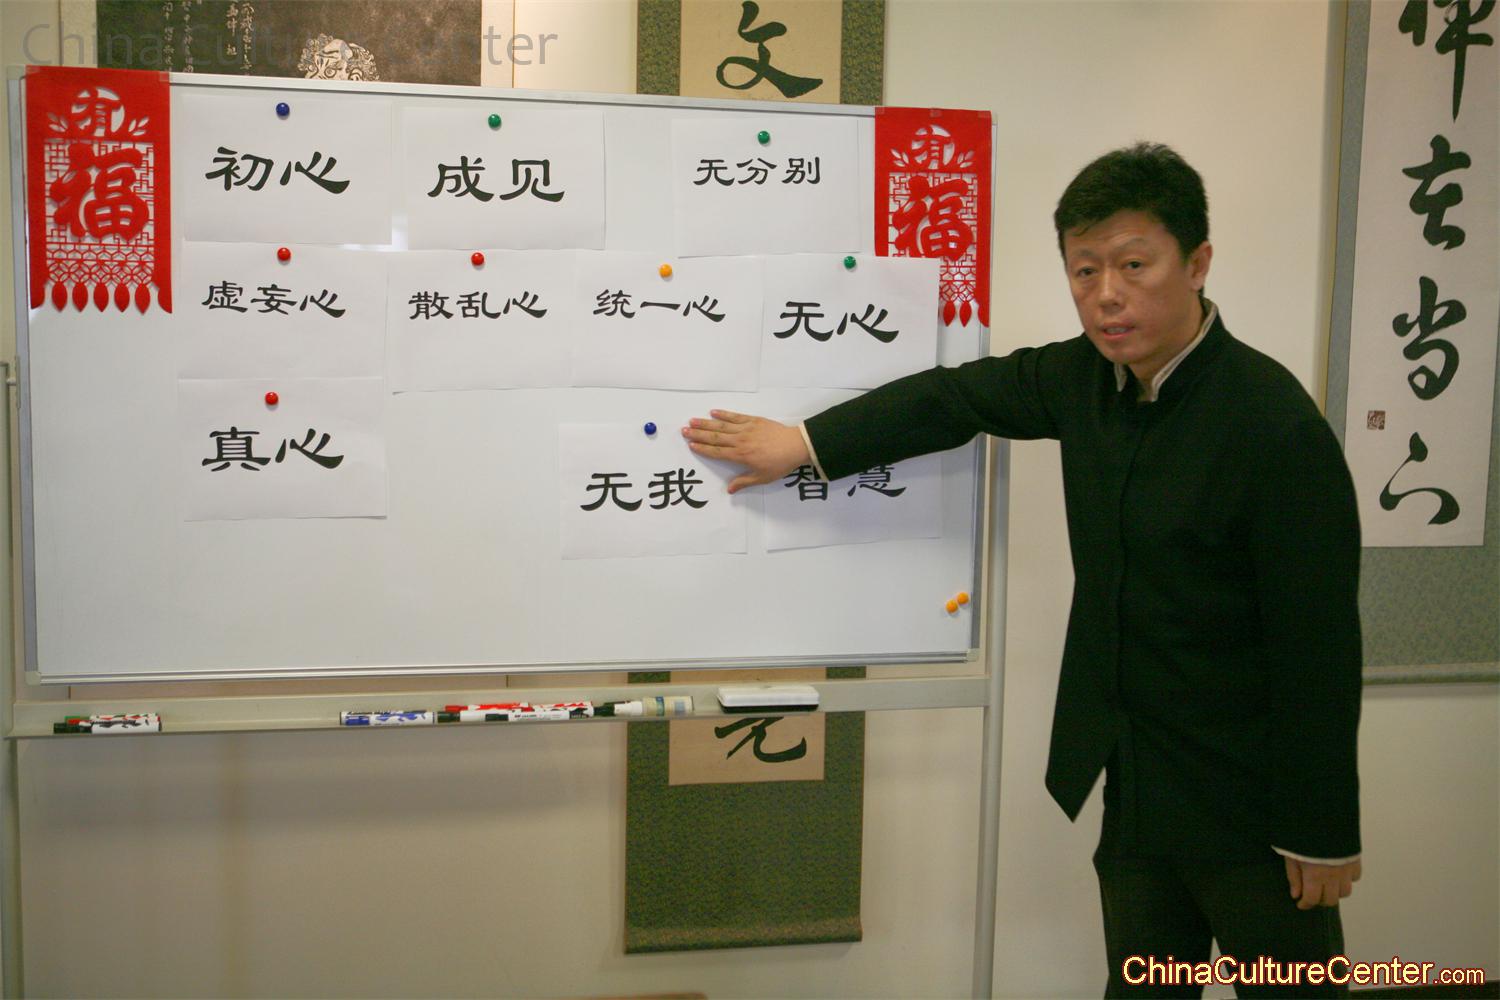 China Culture Center
文
有
福
有
福
初心
成见
无分别
虚妄心
散乱心
统一心
无心
真心
无我
智慧
禅在当下
元
ChinaCultureCenter.com